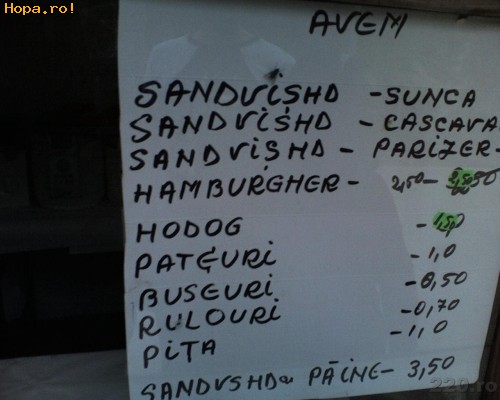 Hopa.ro!
AVEM
SANDVIȘHD - SUNCA
SANDVIȘHD - CASCAVA
SANDVIȘHD - PARIZER -
HAMBURGHER - 2,50 -
HODOG - 1,50
PATEURI - 1,0
BUSEURI - 0,50
RULOURI - 0,70
PITA - 1,0
SANDVSHD PĂINE - 3,50
220.ro